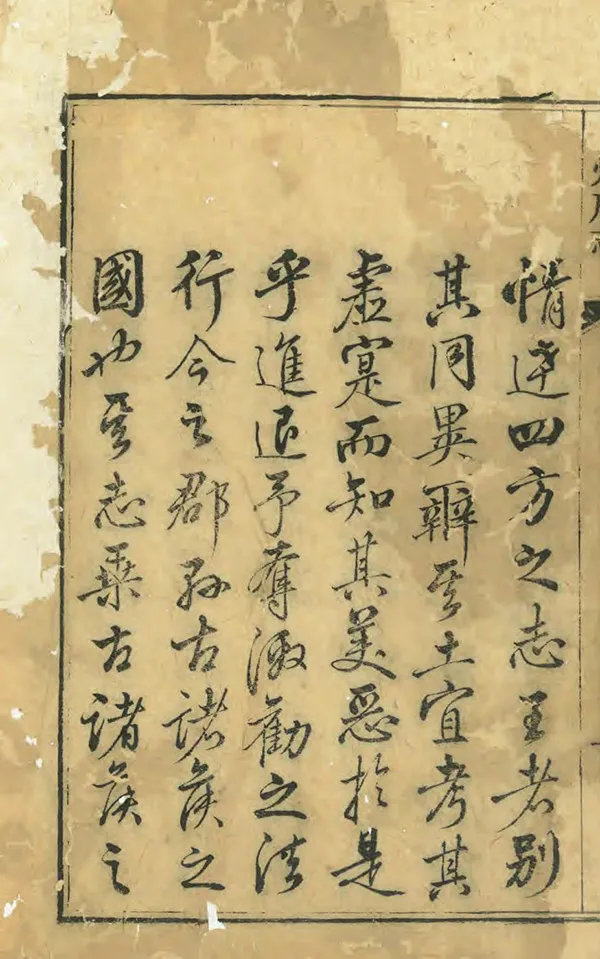 情達四方之志王者別
其同異辨其土宜考其
虛寔而知其美惡於是
乎進退予奪激勸之法
行今之郡縣古諸侯之
國也其志乘古諸侯之